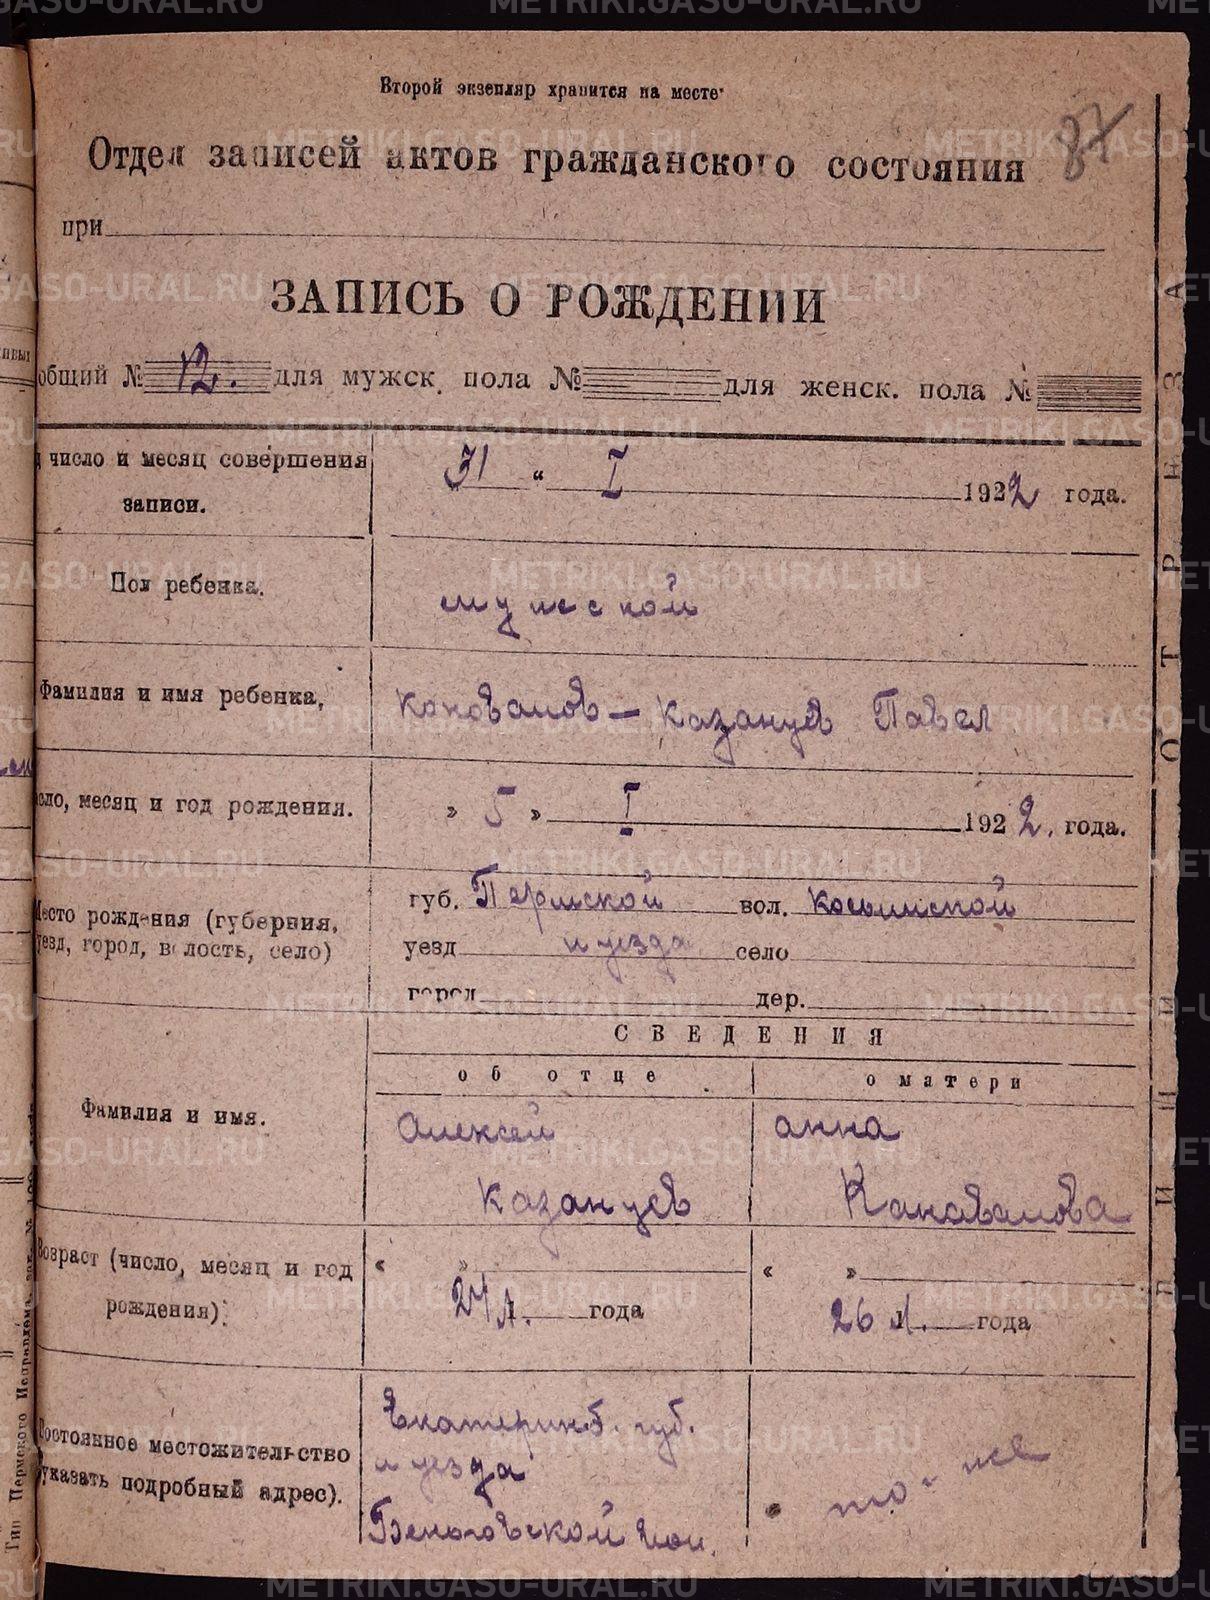 Второй экзепляр хранится на месте
87
Отдел записей актов гражданского состояния
при
ЗАПИСЬ О РОЖДЕНИИ
общий № 12. для мужск. пола № для женск. пола №
число и месяц совершения записи.
31 " I 1922 года.
Пол ребенка.
мужской
Фамилия и имя ребенка,
Коновалов – Казанцев Павел
число, месяц и год рождения.
" 5 " I 1922. года.
Место рождения (губерния, уезд, город, волость, село)
губ. Пермской вол. Косьинской
уезд и уезда село
город дер.
СВЕДЕНИЯ
об отце о матери
Фамилия и имя.
Алексей Анна
Казанцев Канавалова
Возраст (число, месяц и год рождения).
« » « »
24 л. года 26 л. года
Постоянное местожительство (указать подробный адрес).
Екатеринб. губ.
и уезда
то-же
ЛИНИЯ ОТРЕЗА
METRIKI.GASO-URAL.RU